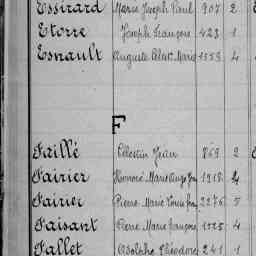 Essirard Marie Joseph Paul 907 2
Etorre Joseph François 423 1
Esnault Auguste Albert Marie 1559 4
F
Faillé Célestin Jean 869 2
Fairier Honoré Marie Ange 1918 4
Fairier Pierre Marie Louis 2276 5
Faisant Pierre Marie François 1725 4
Fallet Adolphe Théodore 241 1